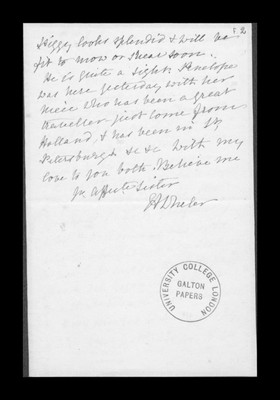 f. 2
Higgy looks splendid & will be
fit to mow or shear soon.
He is quite a sight. Penelope
was here yesterday with her
niece who has been a great
traveller just come from
Holland, & has been in St
Petersburgh &c &c With my
love to you both. Believe me
yr affecte Sister
E A Wheler
UNIVERSITY COLLEGE LONDON
GALTON
PAPERS